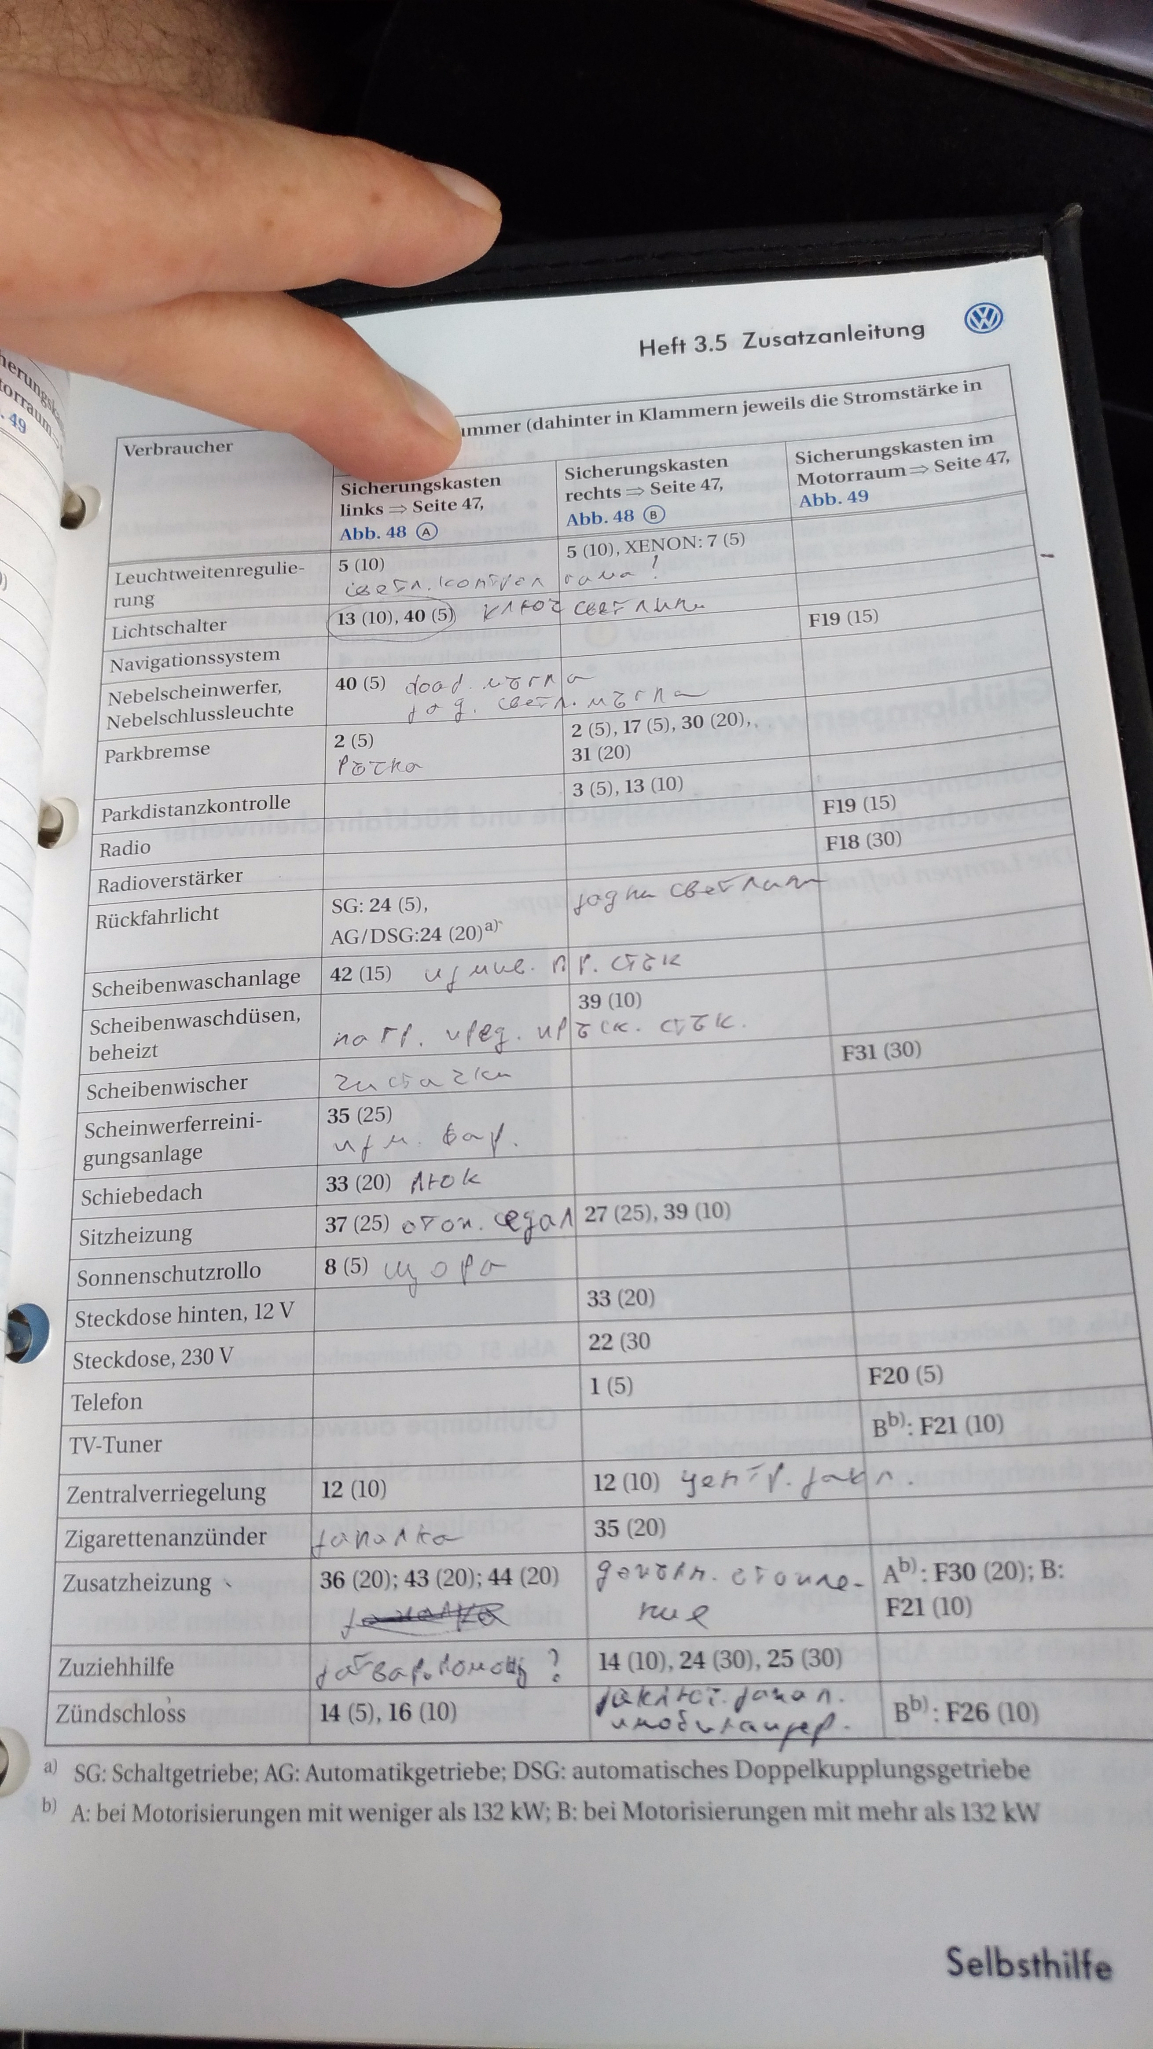 herungsk
torraum
. 49
Heft 3.5 Zusatzanleitung
Verbraucher
ummer (dahinter in Klammern jeweils die Stromstärke in
Sicherungskasten links ⇒ Seite 47, Abb. 48 Ⓐ
Sicherungskasten rechts ⇒ Seite 47, Abb. 48 Ⓑ
Sicherungskasten im Motorraum ⇒ Seite 47, Abb. 49
Leuchtweitenregulie-
rung
5 (10)
5 (10), XENON: 7 (5)
Lichtschalter
13 (10), 40 (5) ключ светлини
Navigationssystem
F19 (15)
Nebelscheinwerfer,
Nebelschlussleuchte
40 (5) мъгла
зад. светл. мъгла
Parkbremse
2 (5)
Ръчка
2 (5), 17 (5), 30 (20),
31 (20)
Parkdistanzkontrolle
3 (5), 13 (10)
Radio
F19 (15)
Radioverstärker
F18 (30)
Rückfahrlicht
SG: 24 (5),
AG/DSG:24 (20)a)
задни светлини
Scheibenwaschanlage
42 (15) измив. пр. стък
Scheibenwaschdüsen,
beheizt
39 (10)
нагр. пръск. стък.
Scheibenwischer
чистачки
F31 (30)
Scheinwerferreini-
gungsanlage
35 (25)
изм. фар.
Schiebedach
33 (20) люк
Sitzheizung
37 (25) отоп. седал
27 (25), 39 (10)
Sonnenschutzrollo
8 (5) щора
Steckdose hinten, 12 V
33 (20)
Steckdose, 230 V
22 (30
Telefon
1 (5)
F20 (5)
TV-Tuner
Bb): F21 (10)
Zentralverriegelung
12 (10)
12 (10) центр. закл.
Zigarettenanzünder
запалка
35 (20)
Zusatzheizung
36 (20); 43 (20); 44 (20)
допълн. отопле-
ние
Ab): F30 (20); B:
F21 (10)
Zuziehhilfe
затвар. помощ ?
14 (10), 24 (30), 25 (30)
Zündschloss
14 (5), 16 (10)
заключ. запал.
имобилайзер.
Bb): F26 (10)
a) SG: Schaltgetriebe; AG: Automatikgetriebe; DSG: automatisches Doppelkupplungsgetriebe
b) A: bei Motorisierungen mit weniger als 132 kW; B: bei Motorisierungen mit mehr als 132 kW
Selbsthilfe